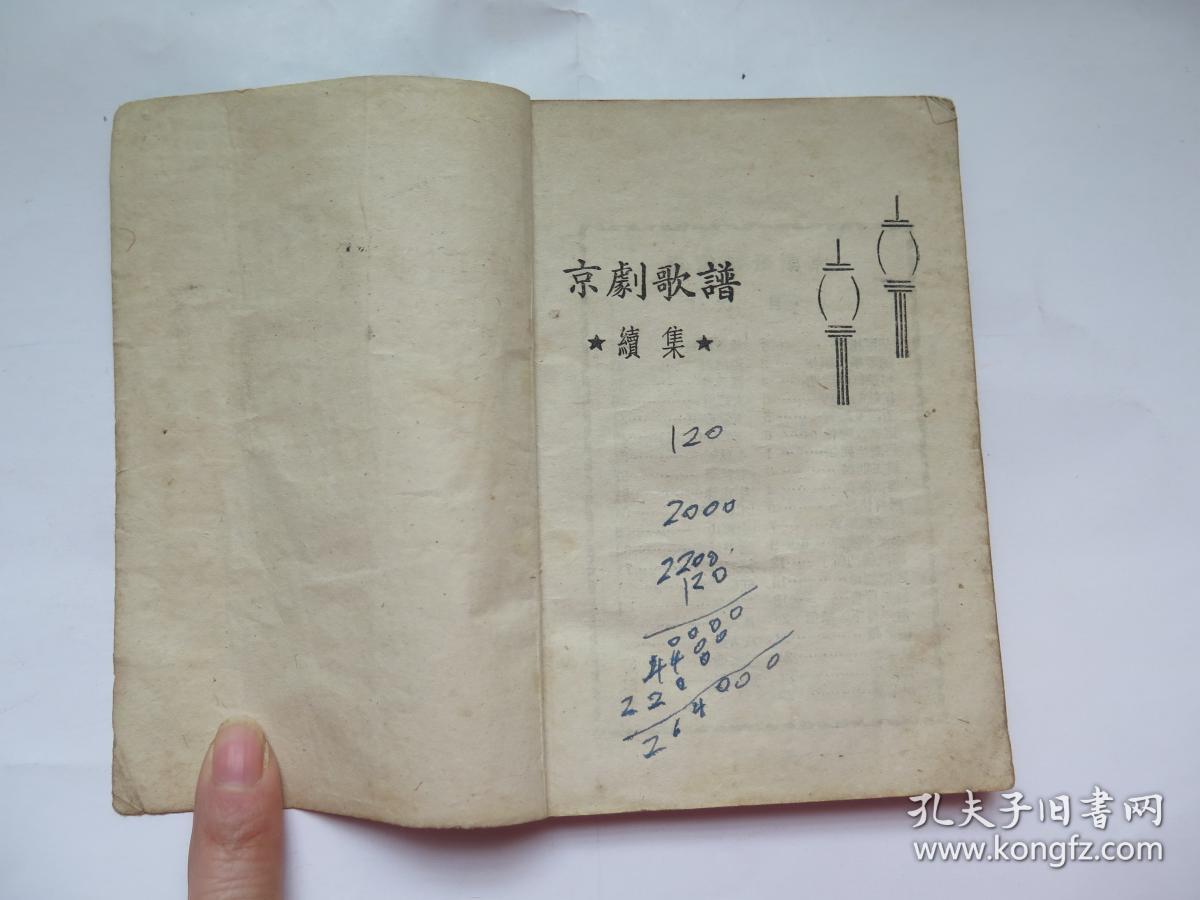 京劇歌譜
★續集★
120
2000
2200
120
0000
4400
2200
264000
孔夫子旧书网
www.kongfz.com